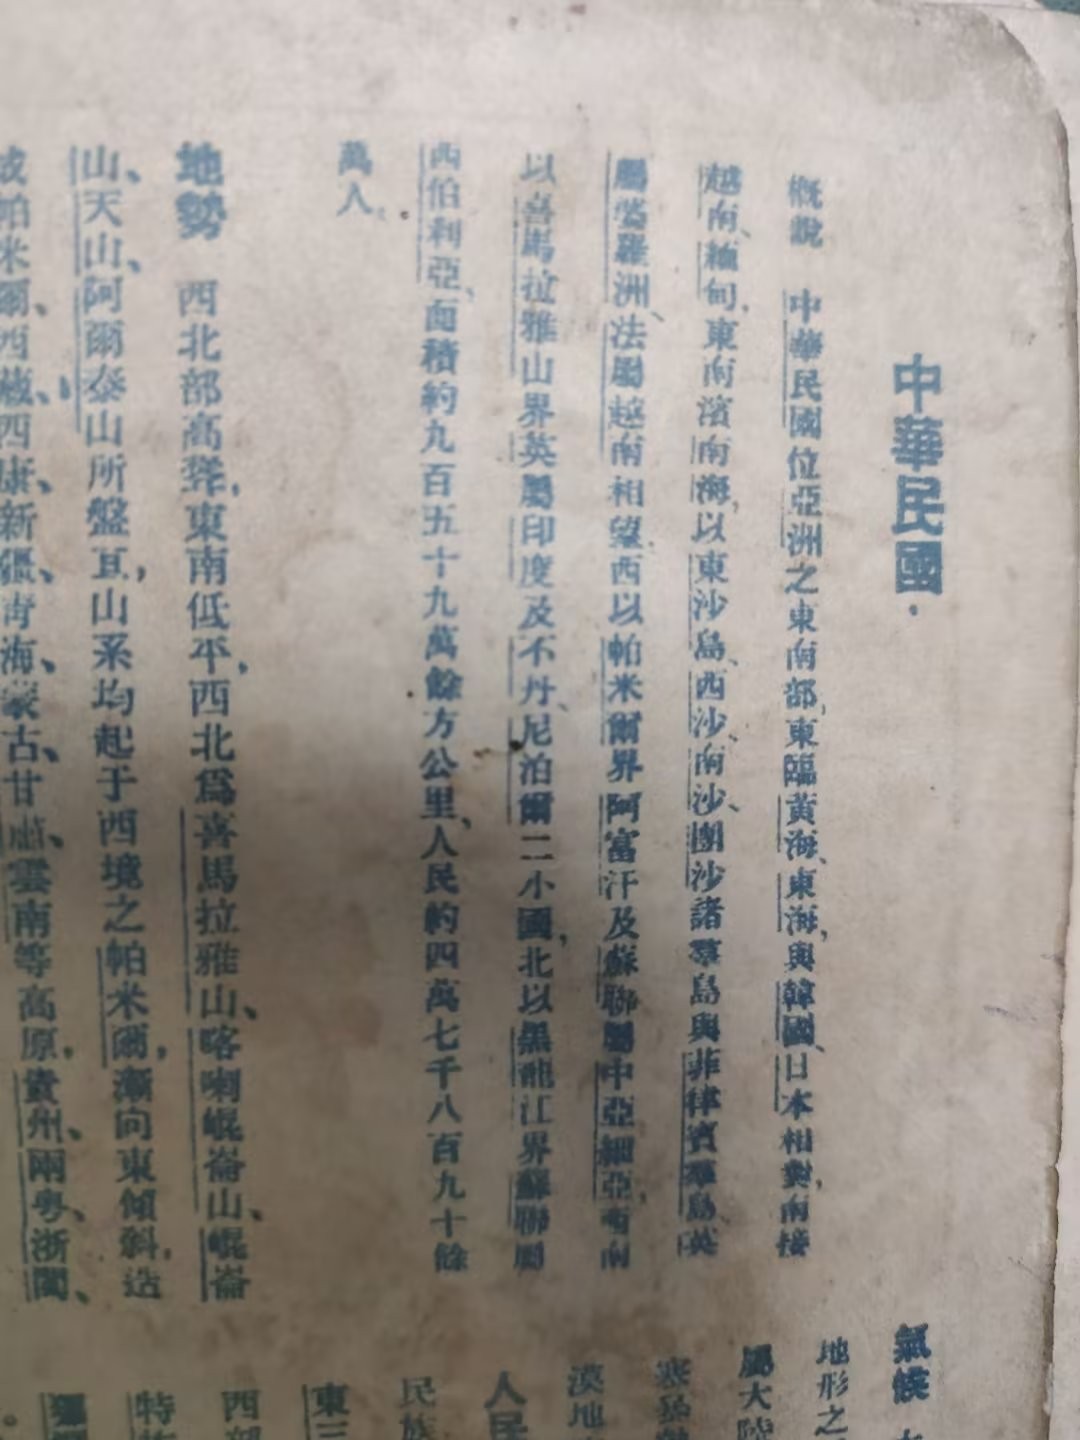 中華民國
概說　中華民國位亞洲之東南部，東臨黃海、東海，與韓國、日本相對，南接
越南、緬甸，東南濱南海，以東沙島、西沙、南沙、團沙諸羣島與菲律賓羣島、英
屬婆羅洲、法屬越南相望，西以帕米爾界阿富汗及蘇聯屬中亞細亞，西南
以喜馬拉雅山界英屬印度及不丹、尼泊爾二小國，北以黑龍江界蘇聯屬
西伯利亞，面積約九百五十九萬餘方公里，人民約四萬七千八百九十餘
萬人。
地勢　西北部高聳，東南低平，西北爲喜馬拉雅山、喀喇崐崙山、崐崙
山、天山、阿爾泰山所盤亙，山系均起于西境之帕米爾，漸向東傾斜，造
成帕米爾、西藏、西康、新疆、靑海、蒙古、甘肅、雲南等高原，貴州、兩粵、浙閩、
氣候
地形之
屬大陸
漠地
人民
民族
東三
西部
特